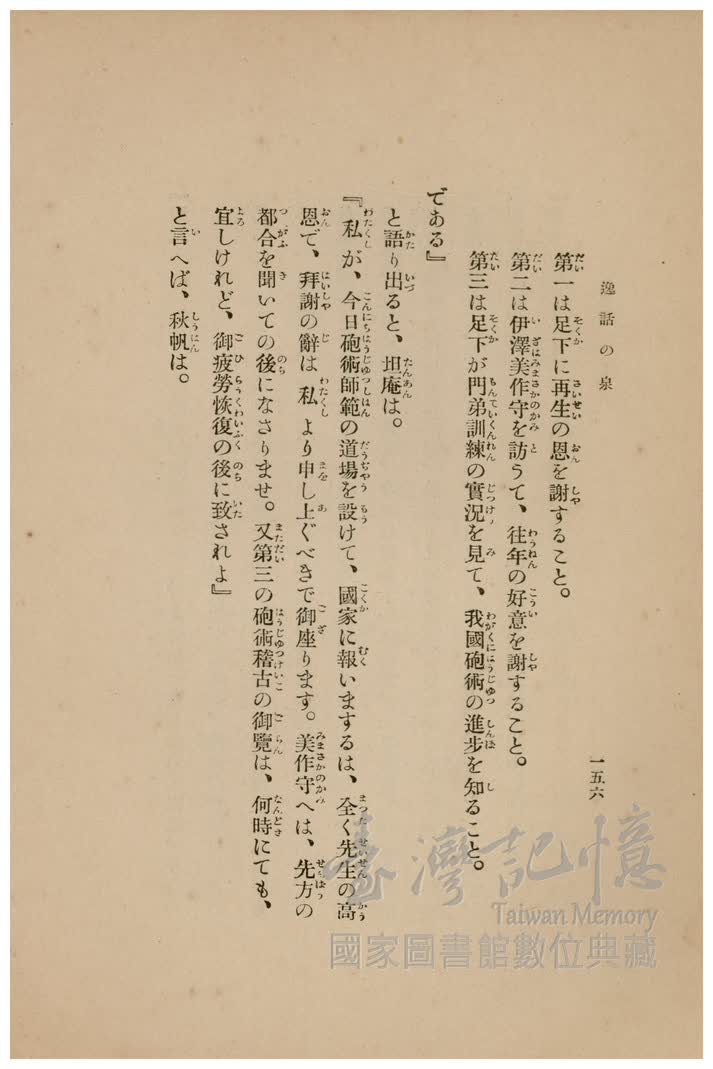 逸話の泉
一五六
第一は足下に再生の恩を謝すること。
第二は伊澤美作守を訪うて、往年の好意を謝すること。
第三は足下が門弟訓練の實況を見て、我國砲術の進步を知ること。
である』
と語り出ると、坦庵は。
『私が、今日砲術師範の道場を設けて、國家に報いまするは、全く先生の高
恩で、拜謝の辭は私より申し上ぐべきで御座ります。美作守へは、先方の
都合を聞いての後になさりませ。又第三の砲術稽古の御覽は、何時にても、
宜しけれど、御疲勞恢復の後に致されよ』
と言へば、秋帆は。
臺灣記憶
Taiwan Memory
國家圖書館數位典藏